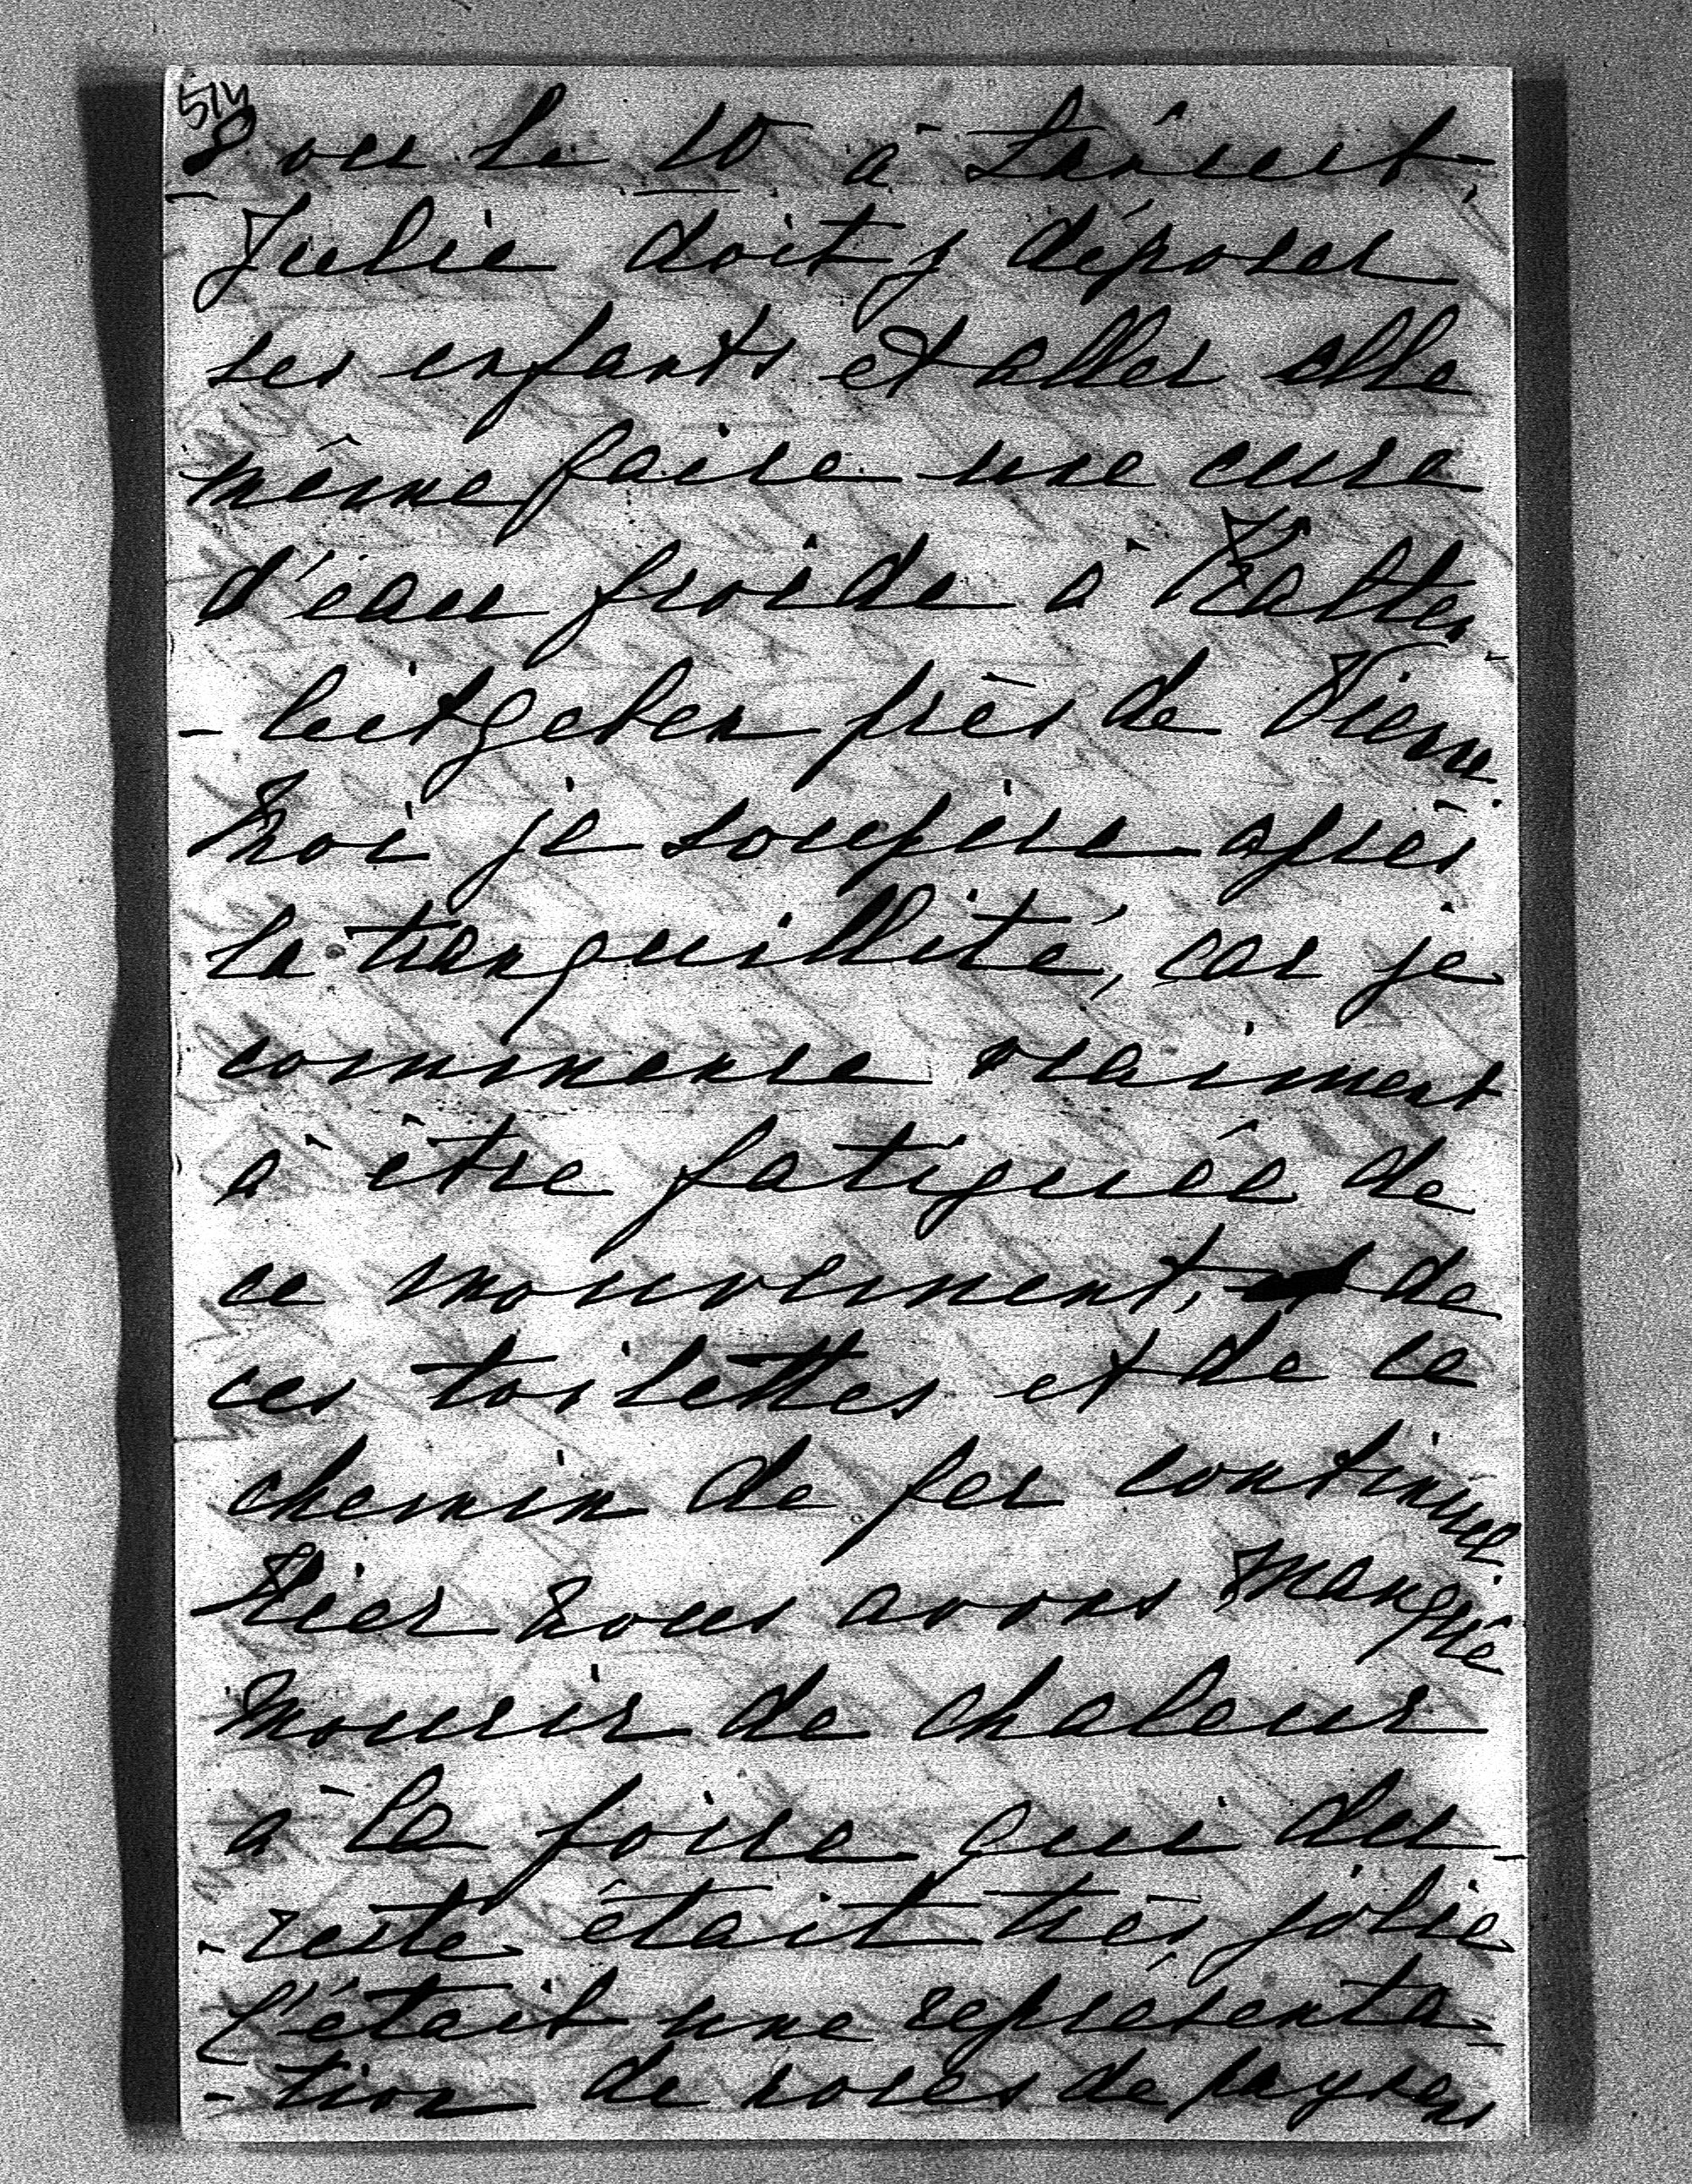 514
8 ou le 10 à Lancut.
Julie doit y déposer
ses enfants et aller elle
même faire une cure
d'eau froide à Kalten
- leitgeben près de Vienne.
Moi je soupire après
la tranquillité, car je
commence vraiment
à être fatiguée de
ce mouvement, de
ces toilettes et de ce
chemin de fer continuel.
Hier nous avons manqué
mourir de chaleur
à la foire qui du
- reste était très jolie.
C'était une représenta-
- tion de noces de paysans